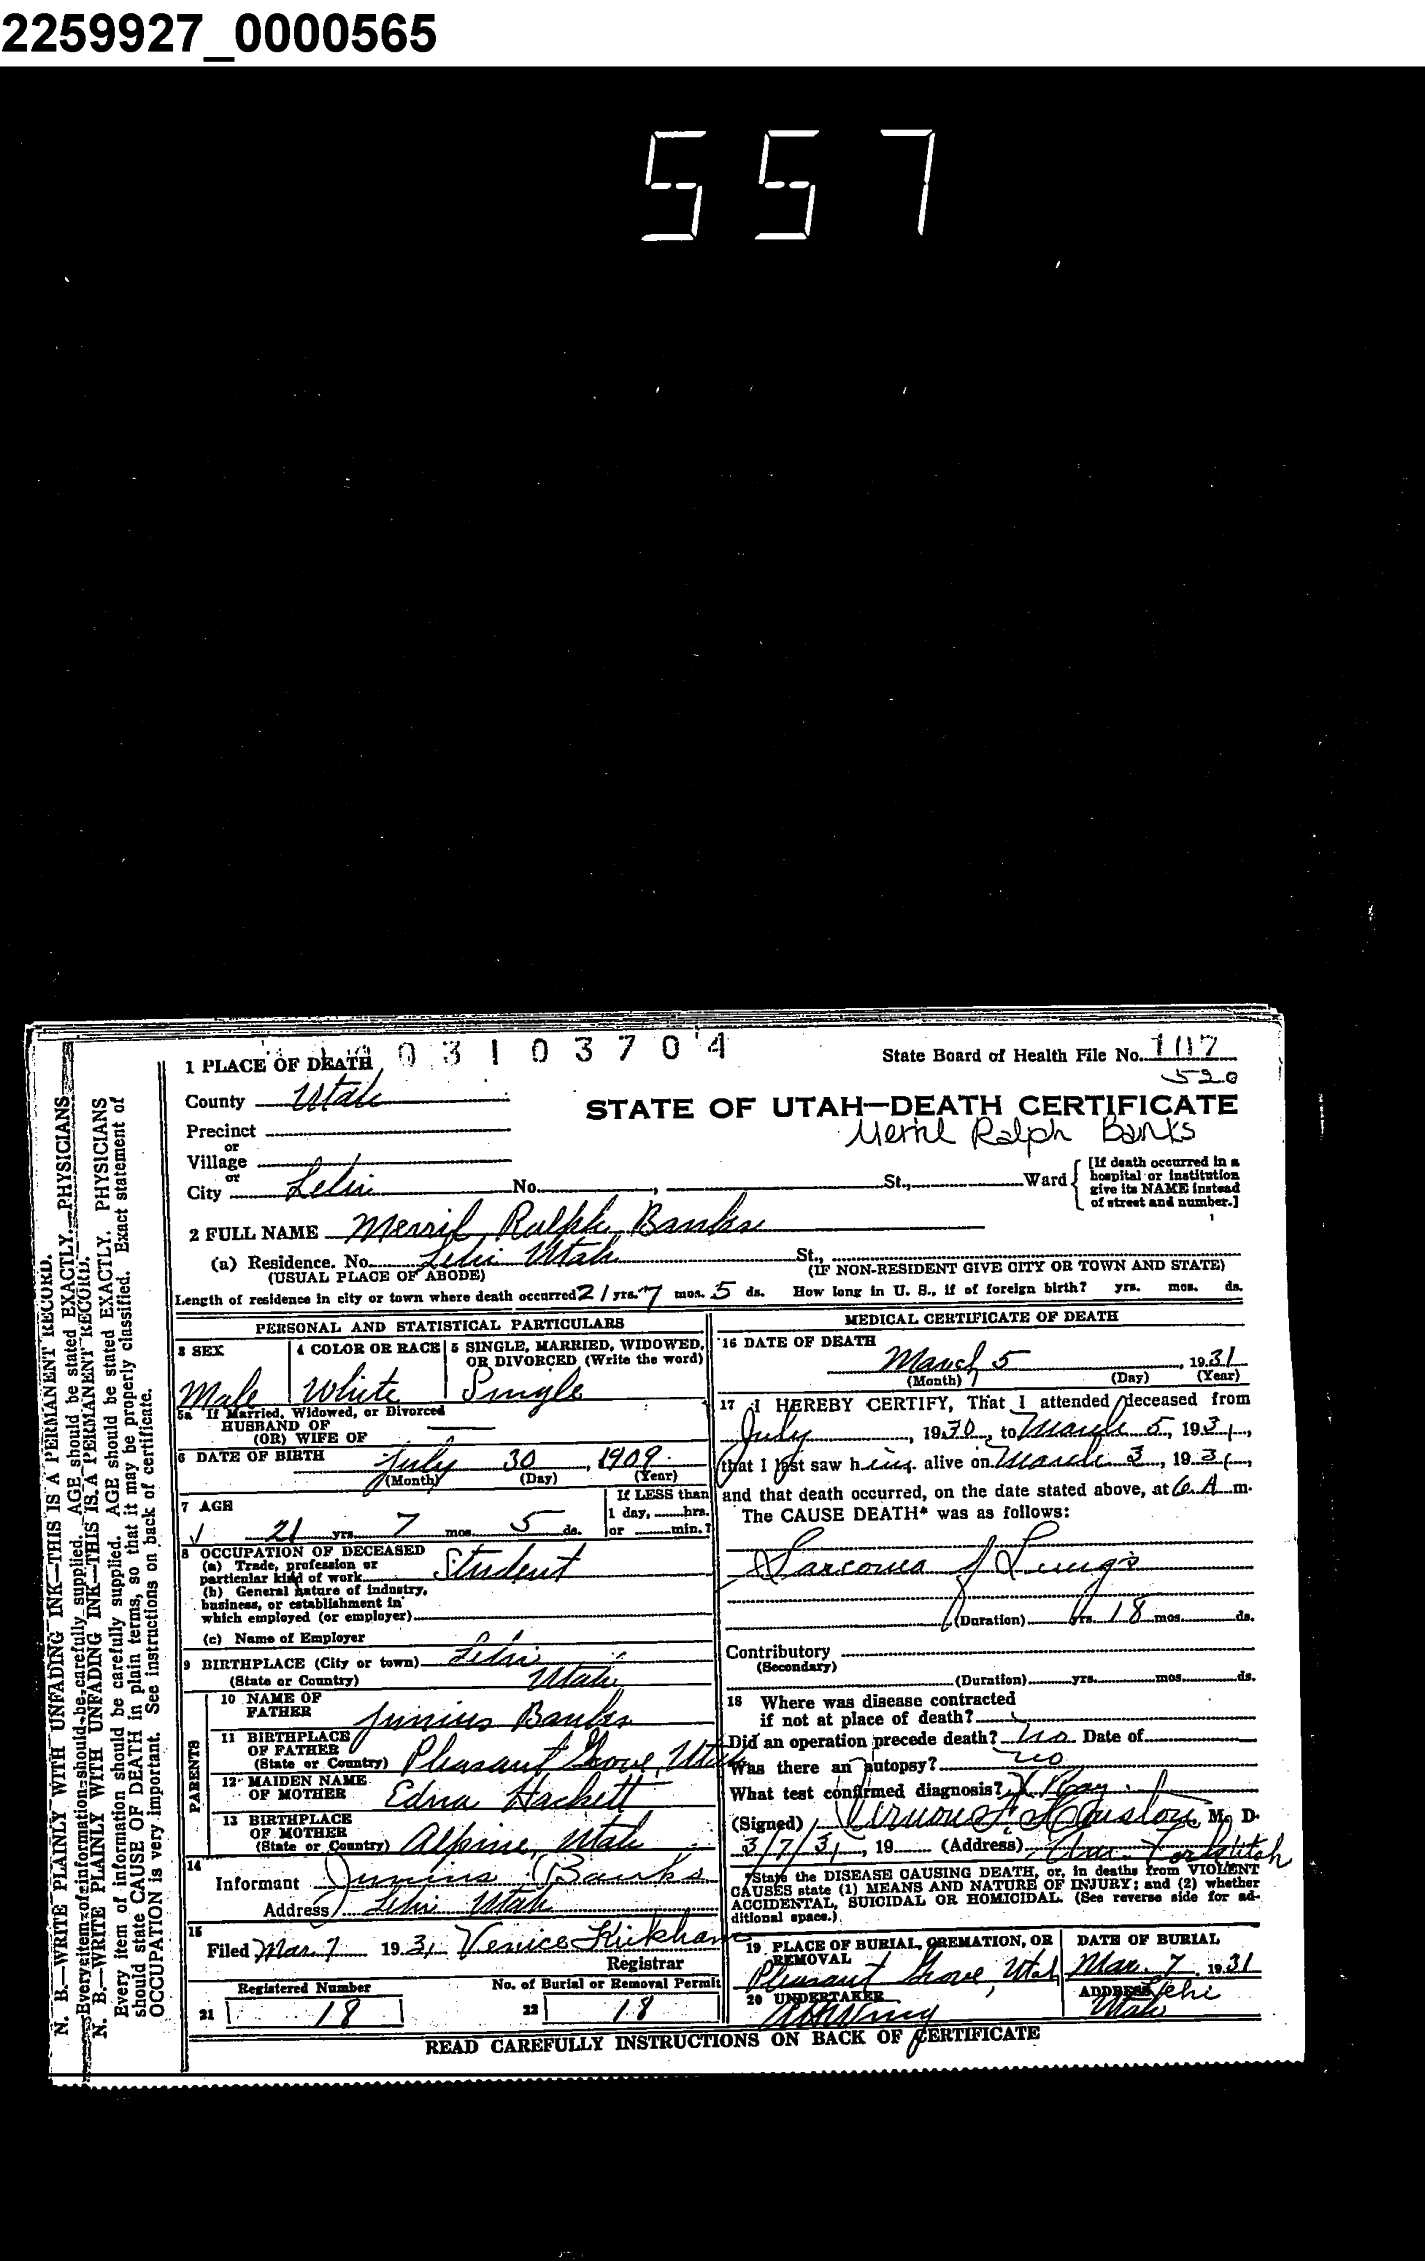 2259927_0000565
557
0 3 1 0 3 7 0 4
State Board of Health File No. 1117
520
1 PLACE OF DEATH
County Utah
STATE OF UTAH—DEATH CERTIFICATE
Merril Ralph Banks
Precinct
or
Village
or
City Lehi No. , St., Ward
[If death occurred in a
hospital or institution
give its NAME instead
of street and number.]
2 FULL NAME Merril Ralph Banks
(a) Residence. No. Lehi Utah St.,
(USUAL PLACE OF ABODE) (IF NON-RESIDENT GIVE CITY OR TOWN AND STATE)
Length of residence in city or town where death occurred 21 yrs. 7 mos. 5 ds. How long in U. S., if of foreign birth? yrs. mos. ds.
PERSONAL AND STATISTICAL PARTICULARS
3 SEX
Male
4 COLOR OR RACE
White
5 SINGLE, MARRIED, WIDOWED,
OR DIVORCED (Write the word)
Single
5a If Married, Widowed, or Divorced
HUSBAND OF
(OR) WIFE OF
6 DATE OF BIRTH July 30, 1909
(Month) (Day) (Year)
7 AGE
21 yrs 7 mos. 5 ds.
If LESS than
1 day, hrs.
or min.?
8 OCCUPATION OF DECEASED
(a) Trade, profession or
particular kind of work Student
(b) General nature of industry,
business, or establishment in
which employed (or employer)
(c) Name of Employer
9 BIRTHPLACE (City or town) Lehi
(State or Country) Utah
PARENTS
10 NAME OF
FATHER Junius Banks
11 BIRTHPLACE
OF FATHER
(State or Country) Pleasant Grove, Utah
12 MAIDEN NAME
OF MOTHER Edna Hackett
13 BIRTHPLACE
OF MOTHER
(State or Country) Alpine, Utah
14
Informant Junius Banks
Address Lehi Utah
15
Filed Mar. 7 1931 Venice Kirkham
Registrar
Registered Number
21 18
No. of Burial or Removal Permit
22 18
MEDICAL CERTIFICATE OF DEATH
16 DATE OF DEATH
March 5, 1931
(Month) (Day) (Year)
17 I HEREBY CERTIFY, That I attended deceased from
July, 1930, to March 5, 1931,
that I last saw him alive on March 3, 1931,
and that death occurred, on the date stated above, at 6 A m.
The CAUSE DEATH* was as follows:
Sarcoma of Lungs
(Duration) yrs. 18 mos. ds.
Contributory
(Secondary)
(Duration) yrs. mos. ds.
18 Where was disease contracted
if not at place of death?
Did an operation precede death? no Date of
Was there an autopsy? no
What test confirmed diagnosis? X Ray
(Signed) Vernon F. Houston, M. D.
3/7/31, 19 (Address) Am. Fork Utah
*State the DISEASE CAUSING DEATH, or, in deaths from VIOLENT
CAUSES state (1) MEANS AND NATURE OF INJURY; and (2) whether
ACCIDENTAL, SUICIDAL OR HOMICIDAL. (See reverse side for ad-
ditional space.)
19 PLACE OF BURIAL, CREMATION, OR
REMOVAL
Pleasant Grove, Utah
DATE OF BURIAL
Mar. 7 1931
20 UNDERTAKER
ADDRESS Lehi
Utah
READ CAREFULLY INSTRUCTIONS ON BACK OF CERTIFICATE
N. B.—WRITE PLAINLY WITH UNFADING INK—THIS IS A PERMANENT RECORD.
Every item of information should be carefully supplied. AGE should be stated EXACTLY. PHYSICIANS
N. B.—WRITE PLAINLY WITH UNFADING INK—THIS IS A PERMANENT RECORD.
Every item of information should be carefully supplied. AGE should be stated EXACTLY. PHYSICIANS
should state CAUSE OF DEATH in plain terms, so that it may be properly classified. Exact statement of
OCCUPATION is very important. See instructions on back of certificate.